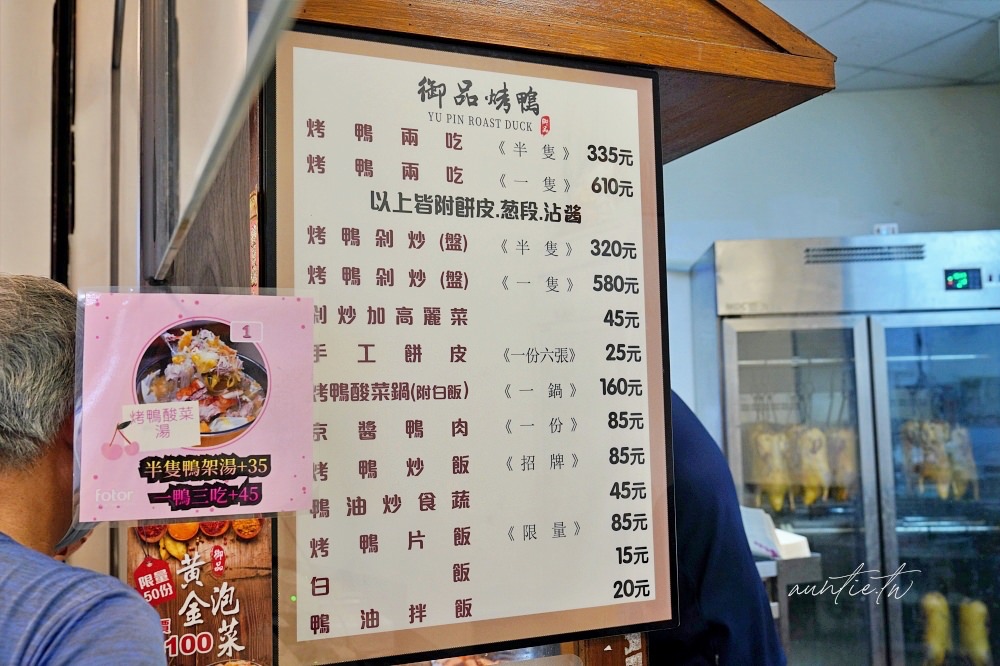 御品烤鴨
YU PIN ROAST DUCK
烤鴨兩吃 《半隻》 335元
烤鴨兩吃 《一隻》 610元
以上皆附餅皮.葱段.沾醬
烤鴨剁炒(盤) 《半隻》 320元
烤鴨剁炒(盤) 《一隻》 580元
剁炒加高麗菜 45元
手工餅皮 《一份六張》 25元
烤鴨酸菜鍋(附白飯) 《一鍋》 160元
京醬鴨肉 《一份》 85元
烤鴨炒飯 《招牌》 85元
鴨油炒食蔬 45元
烤鴨片飯 《限量》 85元
白飯 15元
鴨油拌飯 20元
1
烤鴨酸菜
湯
半隻鴨架湯+35
一鴨三吃+45
fotor
御品
限量
50份
黃金泡菜
100
auntie.tw